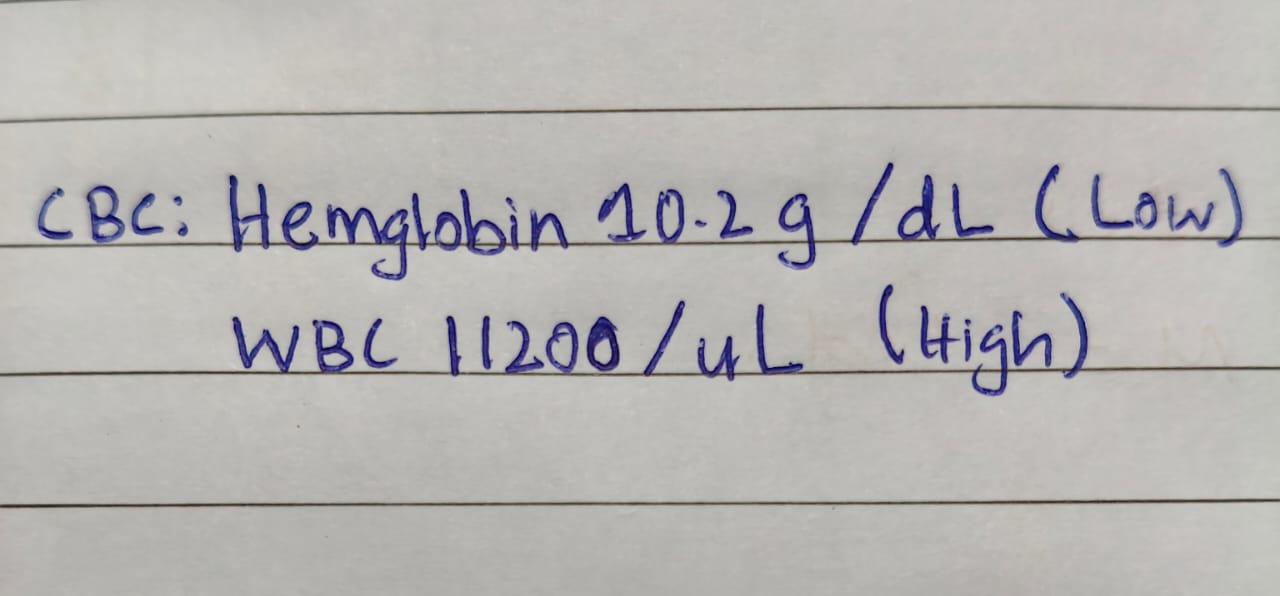 CBC: Hemglobin 10.2 g/dL (Low)
WBC 11200/uL (High)